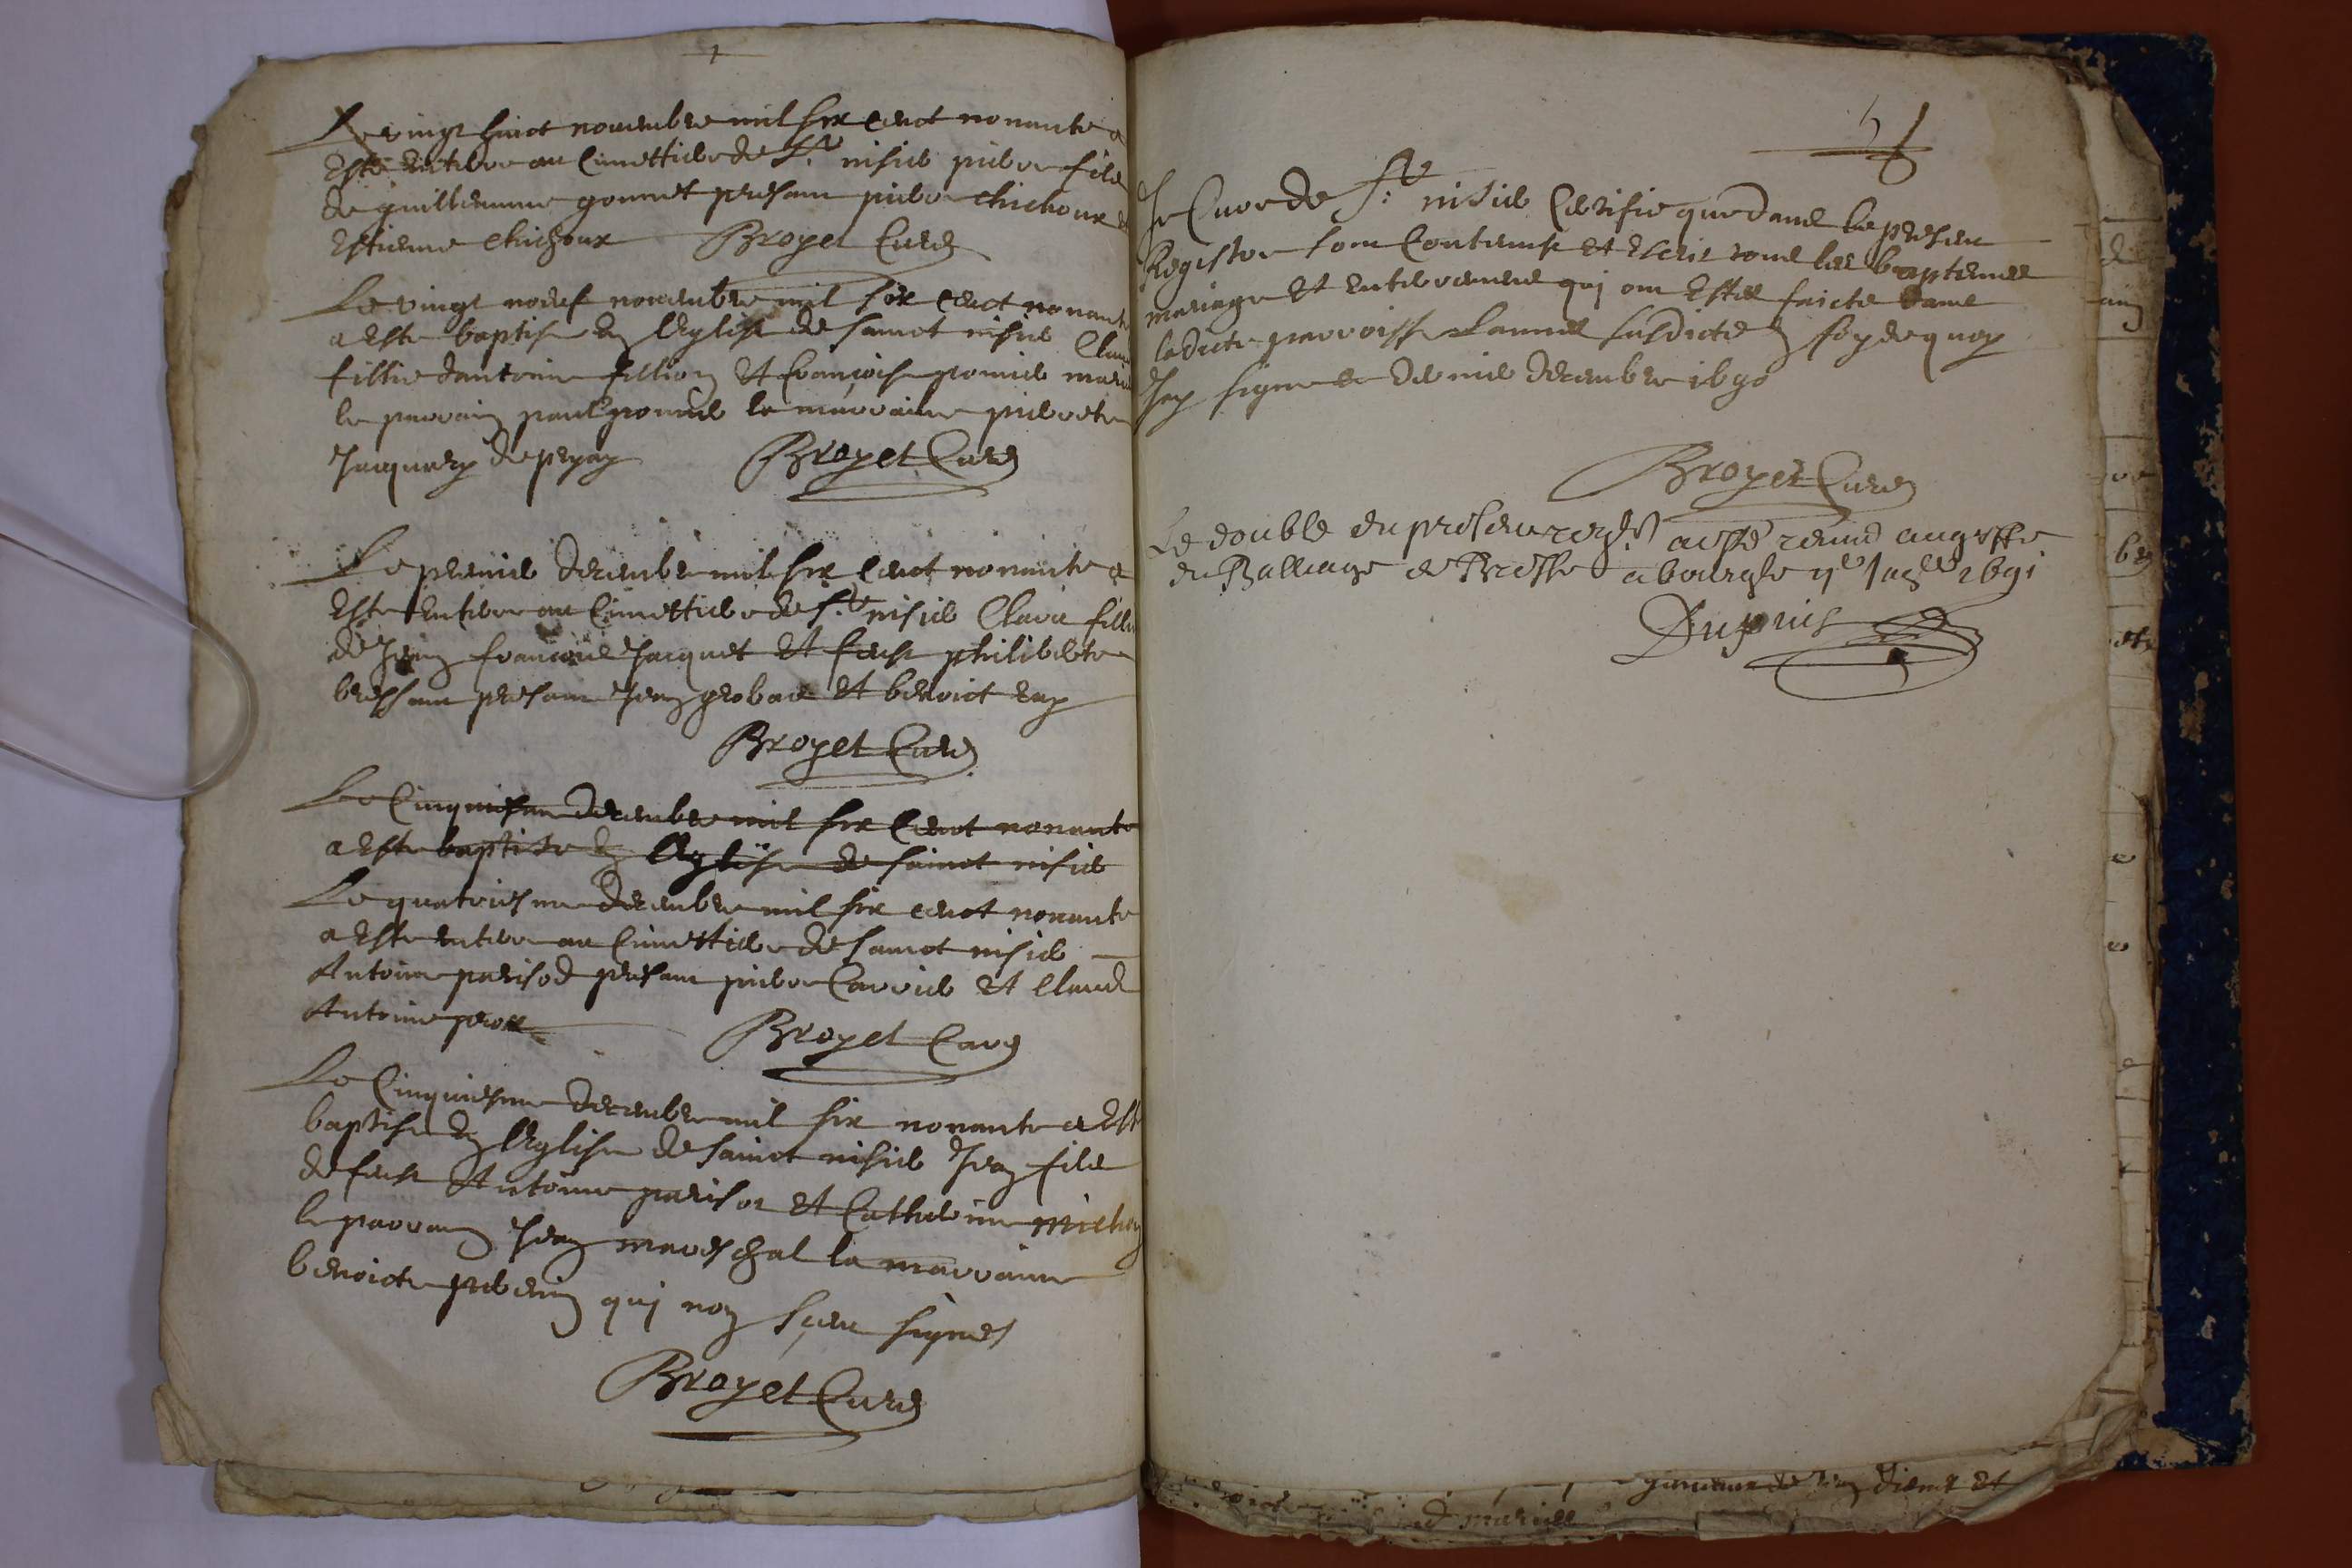 Le vingt huict novembre mil six cent nonante a
Esté Enterre au Cimettiere de St nisier pierre fils
de guillemme gonnet presant pierre chichoux et
Estienne chichoux Broyet Curé
Le vingt noeuf novembre mil six cent nonante
a Este baptise En lEglise de sainct nisier
fillie dantoine fillion Et francoise
le parrain paul la marraine pierrete
Jacquery de Broyet Curé
Le premier decembre mil six cent nonante a
Este Enterre au Cimettiere de St nisier Claire fillie
de Jean francois Jacquet Et feuse philiberte
bressam presant Jean grobas Et benoict
Broyet Curé
Le Cinquiesme decembre mil six cent nonante
a Este baptise En lEglise de sainct nisier
Le quatriesme decembre mil six cent nonante
a Este Enterre au Cimettiere de sainct nisier
Antoine parisod presant pierre Carrier Et Claude
Antoine Broyet Curé
Le Cinquiesme decembre mil six nonante a Esté
baptise En lEglise de sainct nisier Jean fils
de feust Antoine parisot Et Catherine michon
le parrain Jean mareschal la marraine
benoicte qui non sceu signer
Broyet Curé
Je Cure de St nisier Certifie que dans le presen
Registre sont Contenus Et Escris tous les baptemes
mariage Et Enterremens qui ont Estes faicte dans
ladicte parroisse Lannee susdicte En foy de quoy
Jay signe ce dernier decembre 1690
Broyet Curé
Le double du present regre a esté remis au greffe
du Balliage de Bresse a bourg le 1691
Dupuis